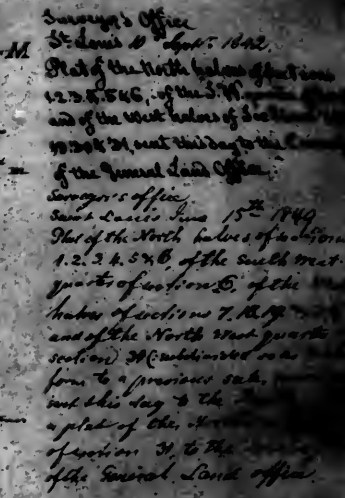 Surveyor's Office
St. Louis Sept. 1842
Plat of the North halves of Sections
1.2.3.4.5&6, of the S.W
and of the West halves of Sec
sent this day to the
of the General Land Office.
Surveyor's office
Saint Louis June 15th 1849
Plat of the North halves of sections
1.2.3.4.5&6, of the South West
quarter of section 6, of the
halves of sections 7, 18, 19
and of the North West quarter
section (subdivided so as
form to a previous sale,
sent this day to the
a plat of the
of section 31, to the
of the General Land Office